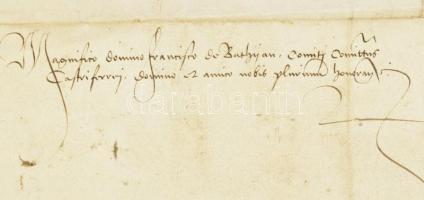 Magnifico domino francisco de Bathyan. Comiti Comittus
Castriferrei. domino et amico nobis plurimum honoran.
darabanth